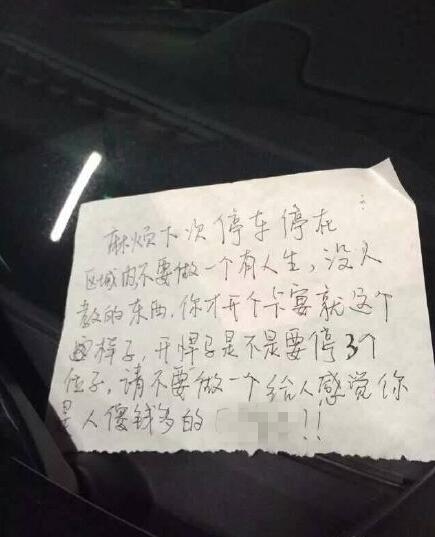 麻烦下次停车停在
区域内不要做一个有人生,没人
教的东西.你才开个卡宴就这个
样子,开悍马是不是要停3个
位子,请不要做一个给人感觉你
是人傻钱多的!!